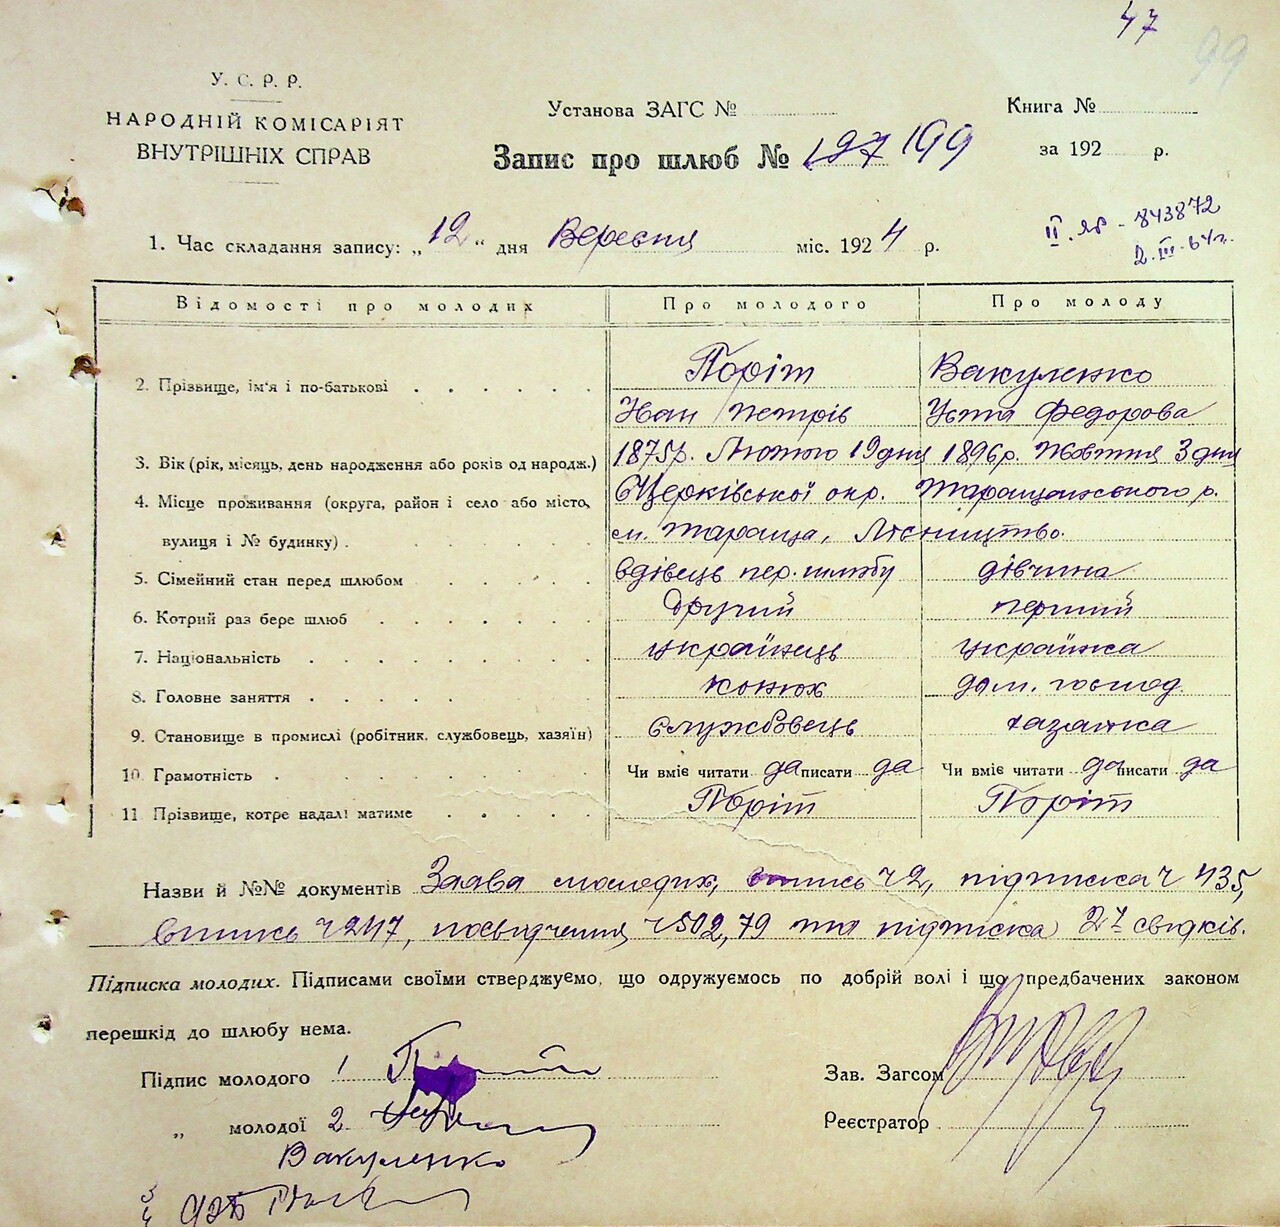 47
99
У. С. Р. Р.
НАРОДНІЙ КОМІСАРІЯТ
ВНУТРІШНІХ СПРАВ
Установа ЗАГС №
Книга №
за 192 р.
Запис про шлюб № 197 199
II. ЯР - 843872
2. III. 64 г.
1. Час складання запису: „12“ дня Вересня міс. 1924 р.
Відомості про молодих Про молодого Про молоду
2. Прізвище, ім'я і по-батькові Поріт Вакуленко
Іван Петрів Устя Федорова
3. Вік (рік, місяць, день народження або років од народж.) 1875р. Лютого 19 дня 1896р. Жовтня 3 дня
4. Місце проживання (округа, район і село або місто, БЦерківської окр. Таращанського р.
вулиця і № будинку) м. Тараща, Лісництво.
5. Сімейний стан перед шлюбом вдівець пер. шлюбу дівчина
6. Котрий раз бере шлюб другий перший
7. Національність українець українка
8. Головне заняття конюх дом. господ.
9. Становище в промислі (робітник, службовець, хазяїн) службовець хазяйка
10. Грамотність Чи вміє читати да писати да Чи вміє читати да писати да
11. Прізвище, котре надалі матиме Поріт Поріт
Назви й №№ документів Заява молодих, випись ч 2, підписка ч 435,
випись ч 247, посвідчення ч 502, 79 та підписка 2х свідків.
Підписка молодих. Підписами своїми стверджуємо, що одружуємось по добрій волі і що предбачених законом
перешкід до шлюбу нема.
Підпис молодого 1
Зав. Загсом
„ молодої 2
Реєстратор
Вакуленко
3
4